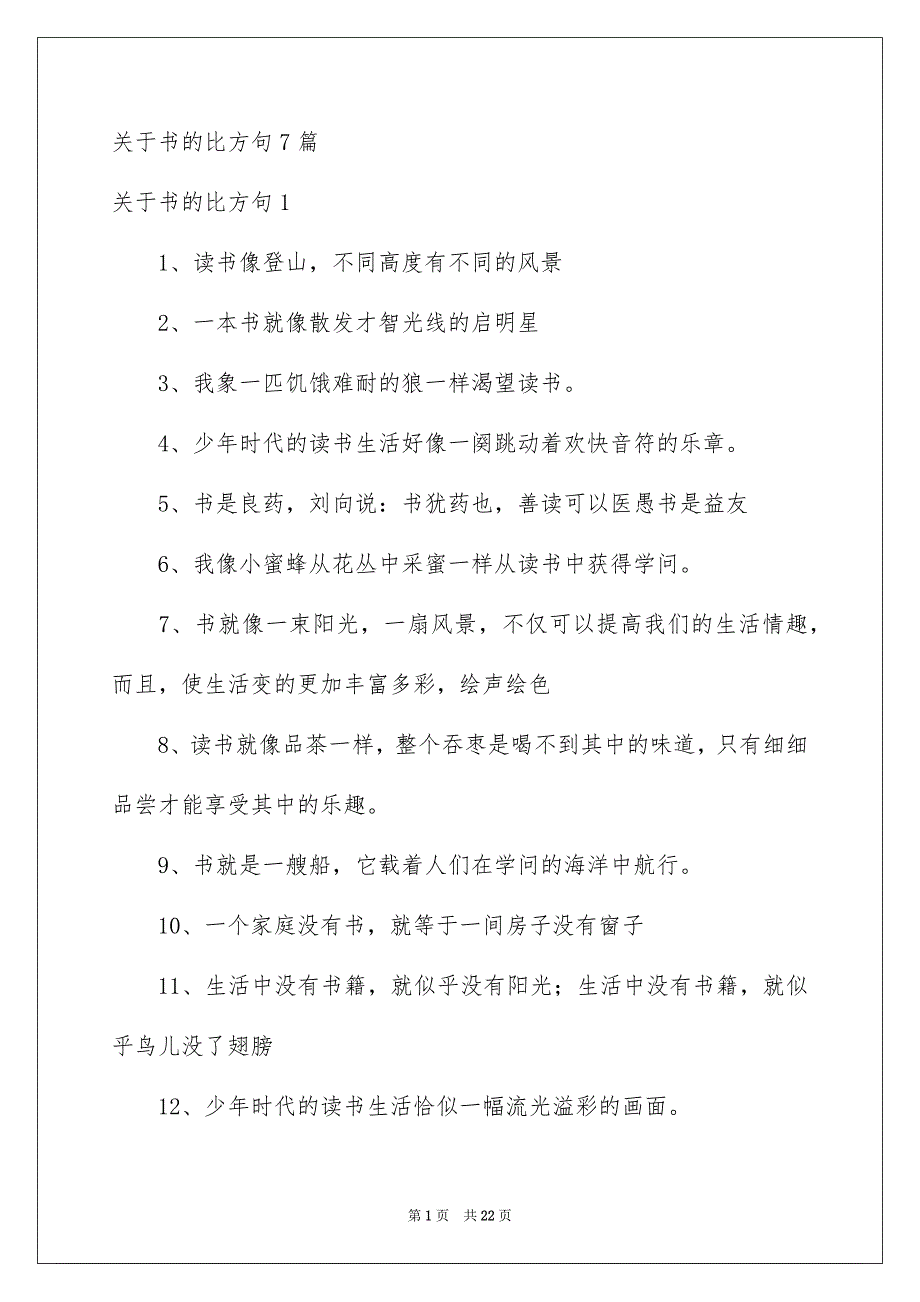 关于书的比方句 7 篇
关于书的比方句 1
1、读书像登山，不同高度有不同的风景
2、一本书就像散发才智光线的启明星
3、我象一匹饥饿难耐的狼一样渴望读书。
4、少年时代的读书生活好像一阕跳动着欢快音符的乐章。
5、书是良药，刘向说：书犹药也，善读可以医愚书是益友
6、我像小蜜蜂从花丛中采蜜一样从读书中获得学问。
7、书就像一束阳光，一扇风景，不仅可以提高我们的生活情趣，
而且，使生活变的更加丰富多彩，绘声绘色
8、读书就像品茶一样，整个吞枣是喝不到其中的味道，只有细细
品尝才能享受其中的乐趣。
9、书就是一艘船，它载着人们在学问的海洋中航行。
10、一个家庭没有书，就等于一间房子没有窗子
11、生活中没有书籍，就似乎没有阳光；生活中没有书籍，就似
乎鸟儿没了翅膀
12、少年时代的读书生活恰似一幅流光溢彩的画面。
第 1 页 共 22 页